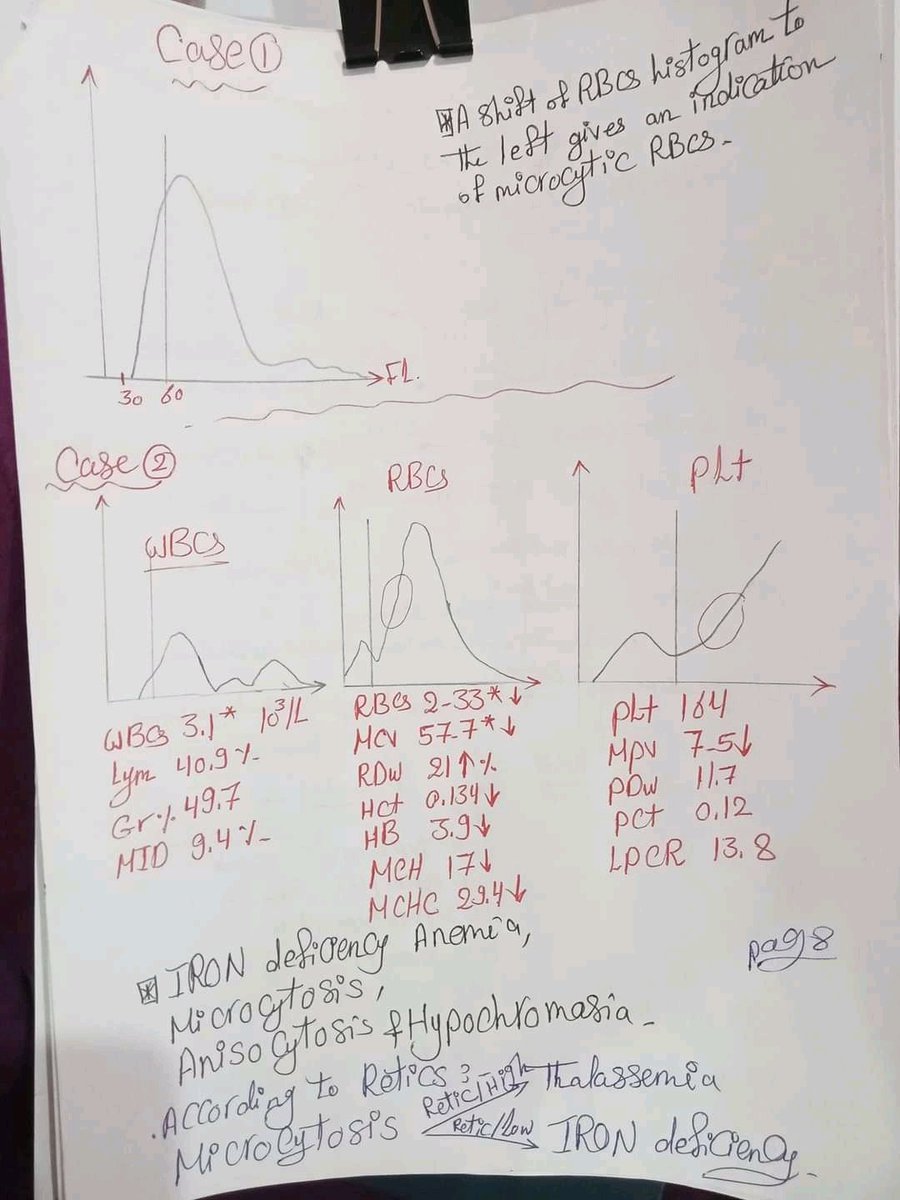 Case ①
A shift of RBCs histogram to
the left gives an indication
of microcytic RBCs -
30 60
FL.
Case ②
WBCs
RBCs
PLt
WBCs 3.1* 10³/L
Lym 40.9 %
Gr% 49.7
MID 9.4 %
RBCs 2-33* ↓
MCV 57.7* ↓
RDW 21 ↑ %
Hct 0.134 ↓
HB 3.9 ↓
MCH 17 ↓
MCHC 29.4 ↓
PLt 164
MPV 7-5 ↓
PDW 11.7
PCt 0.12
LPCR 13.8
IRON deficiency Anemia,
Microcytosis,
Anisocytosis & Hypochromasia -
pag 8
. According to Retics :-
Microcytosis
Retic/High → Thalassemia
Retic/Low → IRON deficiency -